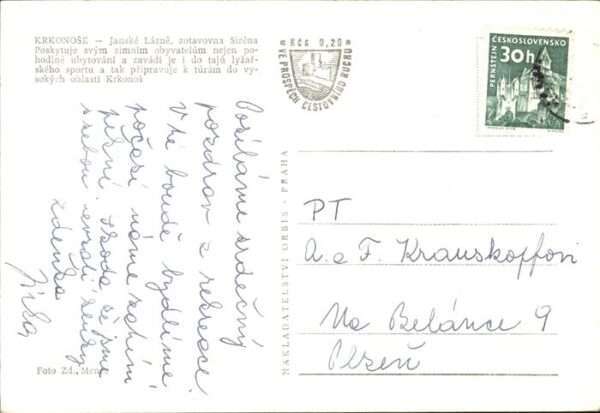 KRKONOŠE – Janské Lázně, zotavovna Siréna
Poskytuje svým zimním obyvatelům nejen po-
hodlné ubytování a zavádí je i do tajů lyžař-
ského sportu a tak připravuje k túrám do vy-
sokých oblastí Krkonoš
Kčs 0,20
VE PROSPĚCH CESTOVNÍHO RUCHU
PERNŠTEJN
ČESKOSLOVENSKO
30h
Posíláme srdečný
pozdrav z rekreace.
V té boudě bydlíme
počasí máme zatím
pěkné. Škoda že jsme
sebou
Zdenka
Jirka
NAKLADATELSTVÍ ORBIS - PRAHA
PT
A. a F. Krauskopffovi
Na Belánce 9
Plzeň
Foto Zd.